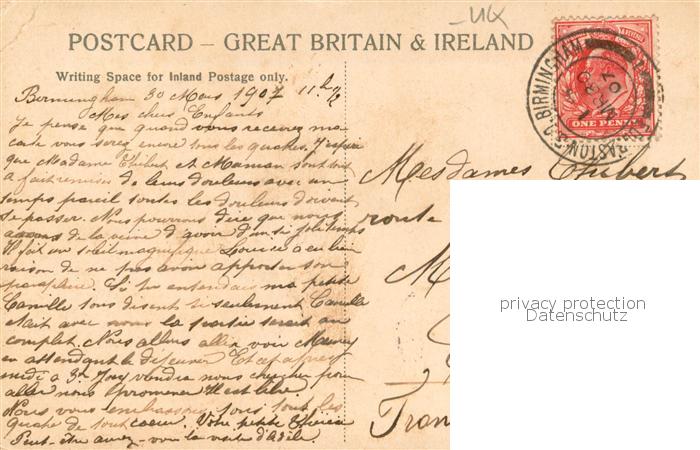 UK
POSTCARD – GREAT BRITAIN & IRELAND
Writing Space for Inland Postage only.
Birmingham 30 Mars 1907 11h ½
Mes chers Enfants
Je pense que quand vous recevrez ma
carte vous serez encore tous les quatres. J'espère
que Madame Thibert et Maman sont tout
a fait remises de leurs douleurs avec un
temps pareil toutes les douleurs doivent
se passer. Nous pourrons dire que nous
avons de la veine d'avoir d'un si joli temps
Il fait un soleil magnifique Louise a eu bien
raison de ne pas avoir apporter son
parapluie. Si tu entendais ma petite
Camille tous disent si seulement Camille
était avec nous la partie serait au
complet. Nous allons aller voir
en attendant le déjeuner Et cet après
midi a 3h viendra nous chercher pour
aller nous promener
Nous vous embrassons tous tout les
quatre de tout coeur. Votre petite
Peut-être aurez-vous la visite
Mesdames Thibert
route
M
Fran
BIRMINGHAM
ONE PENNY
privacy protection
Datenschutz